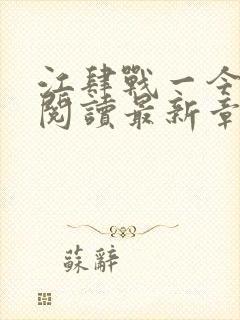 江肆戰一令
閱讀最新章
蘇辭